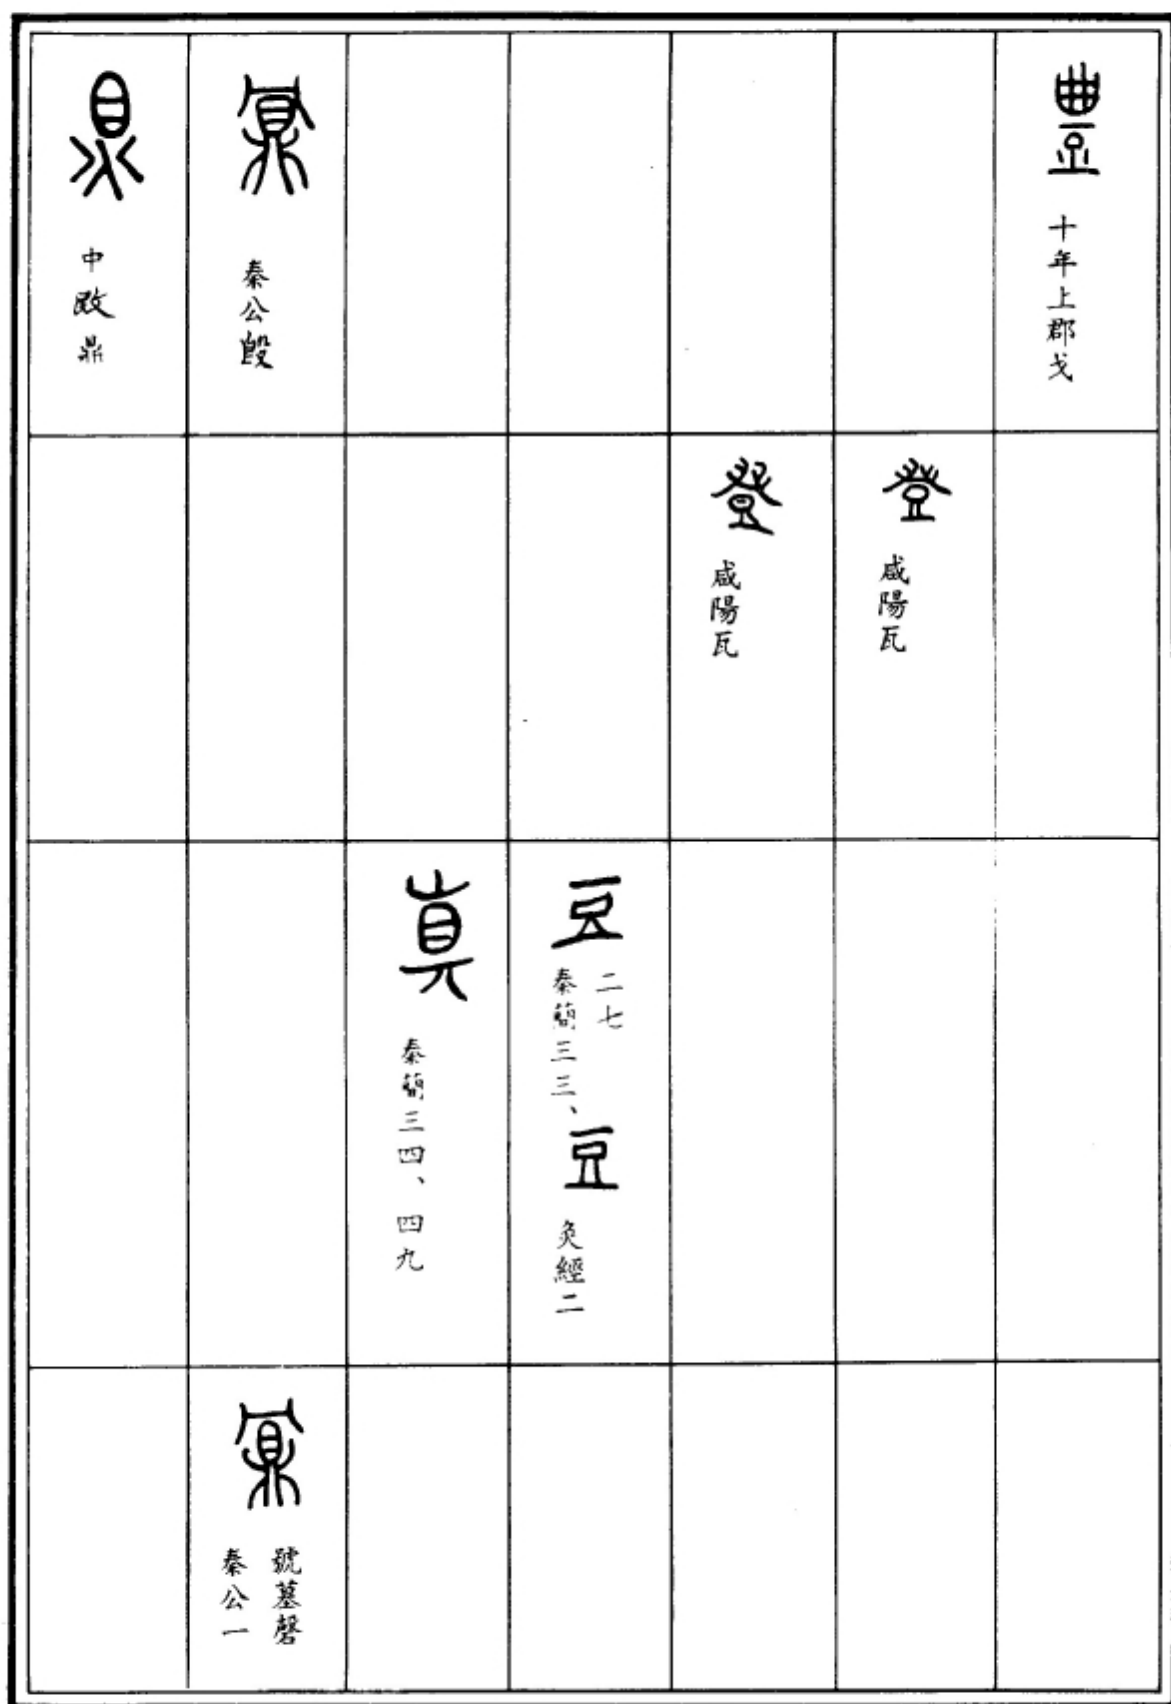 豊
十年上郡戈
登
咸陽瓦
登
咸陽瓦
豆
秦簡三三、
二七
豆
灸經二
秦簡三四、四九
鼏
秦公𣪘
鼏
秦公一
號墓磬
鼎
中 鼎